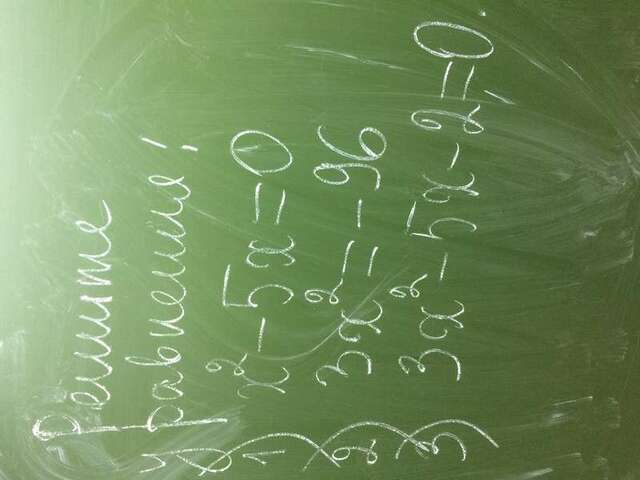 Решите
уравнения;
1) x² - 5x = 0
2) 3x² = -96
3) 3x² - 5x - 2 = 0